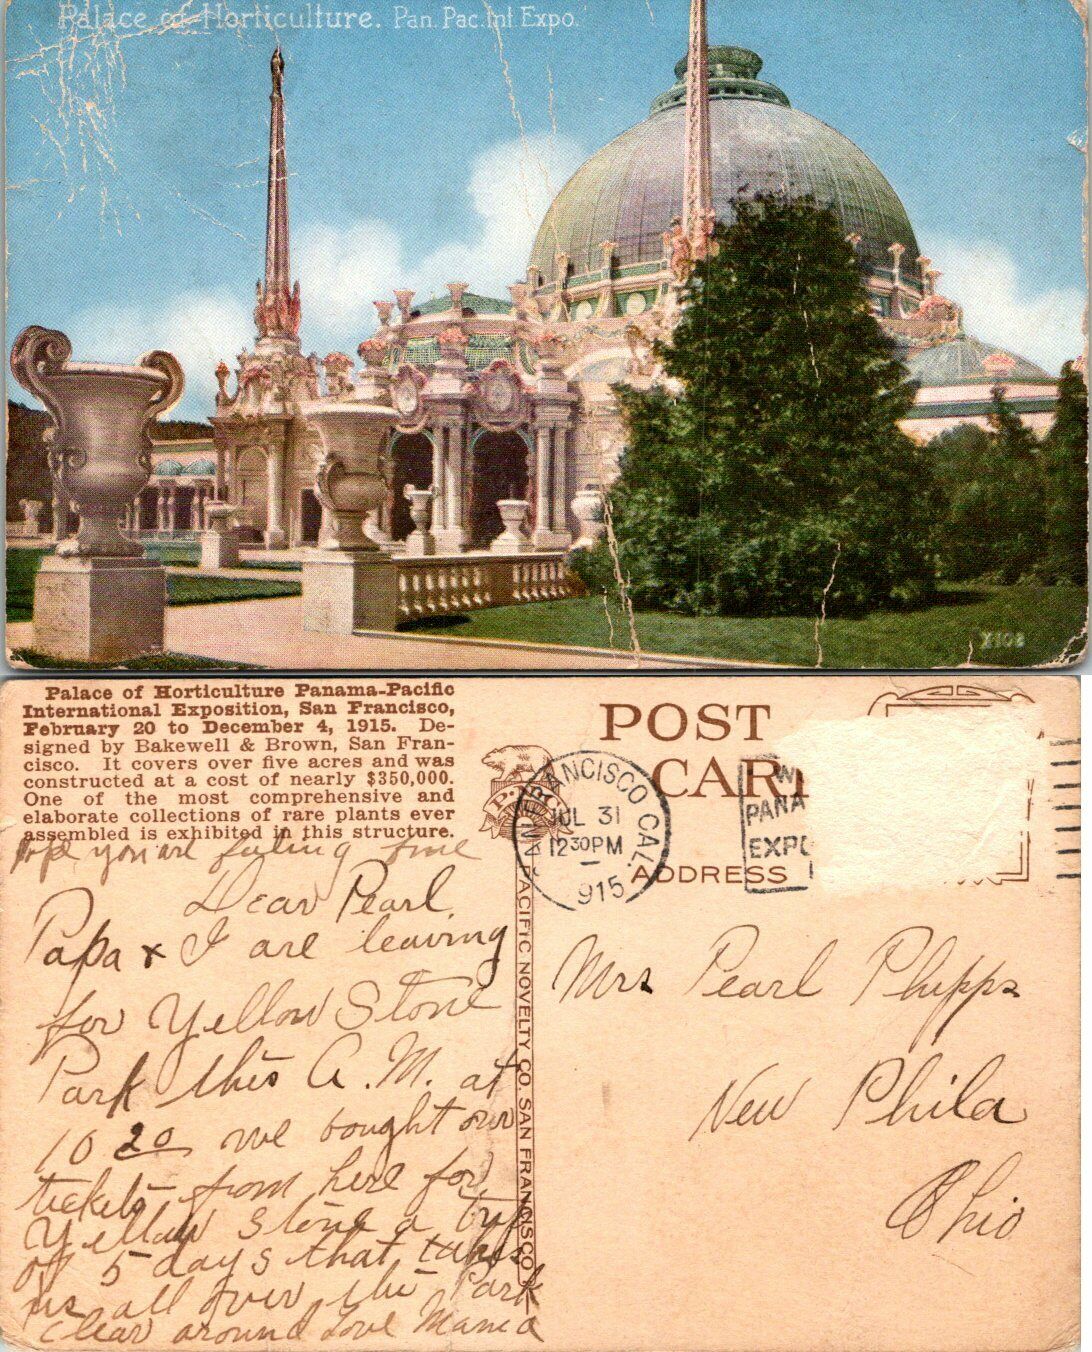 Palace of Horticulture. Pan. Pac. Int Expo.
X108
Palace of Horticulture Panama-Pacific
International Exposition, San Francisco,
February 20 to December 4, 1915. De-
signed by Bakewell & Brown, San Fran-
cisco. It covers over five acres and was
constructed at a cost of nearly $350,000.
One of the most comprehensive and
elaborate collections of rare plants ever
assembled is exhibited in this structure.
hope you are feeling fine
Dear Pearl,
Papa & I are leaving
for Yellow Stone
Park this A.M. at
10 20 we bought our
tickets from here for
Yellow Stone a trip
of 5 days that takes
us all over the Park
clear around Love Mama
POST
CAR
ADDRESS
P.N.C.
SAN FRANCISCO CAL.
JUL 31
12 30 PM
1915
PANA
EXPO
PACIFIC NOVELTY CO. SAN FRANCISCO
Mrs Pearl Phipps
New Phila
Ohio